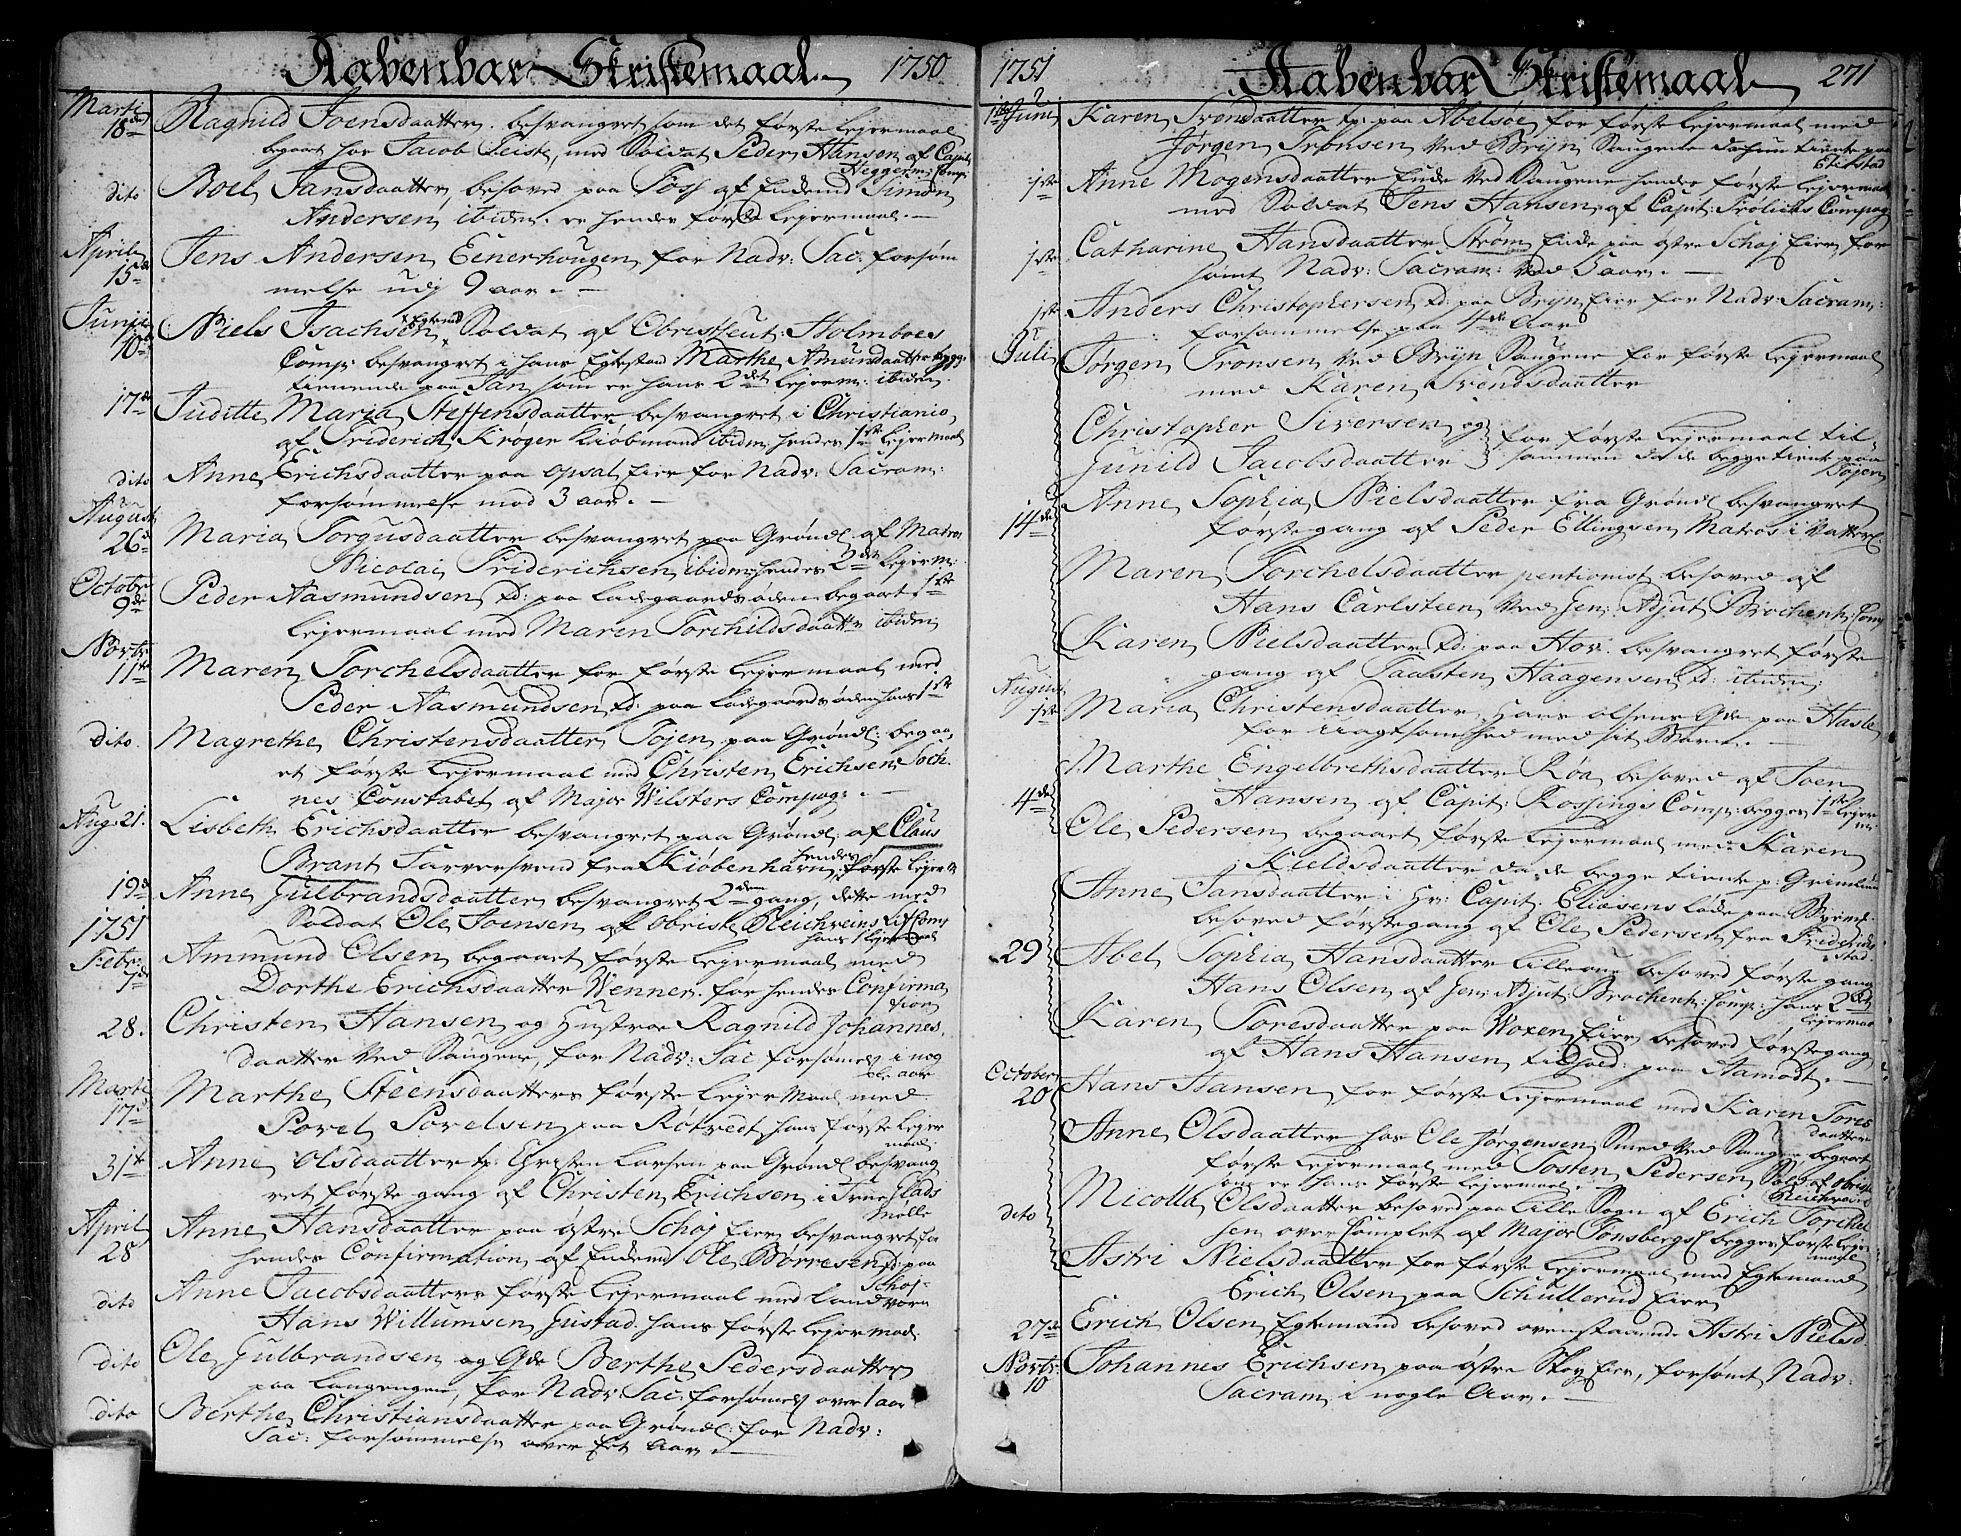 Aabenbar Skriftemaal 1750
Martj 18de Ragnild Joensdaatter besvangret som det første Lejermaal
begaaet hos Jacob Feiste, med Soldat Peder Hansen af Capit:
Heggerm: Comp:
dito Boel Jansdaatter besoved paa Tøsj af Endend Simon
Andersen ibiden. er hendes første Lejermaal.
April 15de Jens Andersen Eenerhougen for Nadv: Sac. forsøm
melse udj 9 aar.
Junii 10de Niels Isachsen Soldat af Obristleut: Holmboes
Comp: besvangret i hans Egtestad Marthe Amundsdaatter
tienende paa Jan som er hans 2det Lejerm: ibiden.
17de Juditte Maria Steffensdaatter besvangret i Christiania
af Friderich Krøger Kiøbmand ibiden hendes 1ste Lejermaal
dito Anne Erichsdaatter paa Opsal Eier for Nadv: Sacram:
forsømmelse mod 3 aar.
August 26de Maria Torgusdaatter besvangret paa Grønl: af Matros
Nicolai Friderichsen ibiden hendes 2den Lejerm:
Octobr 9de Peder Aasmundsen td: paa Ladegaardsøden begaaet 1ste
Lejermaal med Maren Torchildsdaatter ibiden
Novbr 11te Maren Torchelsdaatter for første Lejermaal med
Peder Aasmundsen td: paa Ladegaardsøden hans 1ste
dito Magrethe Christensdaatter Tojen paa Grønl: begaa-
et første Lejermaal med Christen Erichsen Soch-
nes Constabel af Major Wilsters Compag:
Aug: 21. Lisbeth Erichsdaatter besvangret paa Grønl: af Claus
Brant Farversvend fra Kiøbenhavn, hendes første Lejerm
19de Anne Gulbrandsdaatter besvangret 2den gang, dette med
Soldat Ole Joensen af Obrist Bleichveins Lif Comp
hans 1 Lejermaal
1751
Febr: 7de Ammund Olsen begaaet første Lejermaal med
Dorthe Erichsdaatter Wenner. før hendes Confirma
tion
28. Christen Hansen og Hustroe Ragnild Johannes-
daatter ved Saugene, for Nadv: Sac forsømels i nog
le aar
Martj 17de Marthe Steensdaatters første Lejermaal med
Povel Povelsen paa Røtvedt, hans første Lejer
maal.
31te Anne Olsdaatter tp: Christen Larsen paa Grønl: besvang
ret første gang af Christen Erichsen i Trne Glads
Mølle
April 28 Anne Hansdaatter paa østre Schoj Eier besvangret før
hendes Confirmation af Endend Ole Børresen td: paa
Schoj.
dito Anne Jacobsdaatters første Lejermaal med Landvorn
Hans Willumsen Gustad. hans første Lejermoel.
dito Ole Gulbrandsen og Qde Berthe Pedersdaatter
paa Langengen, for Nadv: Sac: forsømels over 1 aar
dito Berthe Christiansdaatter paa Grønl: for Nadv:
Sac: forsømmelse over Et Aar.
1751 Aabenbar Skriftemaal 271
Junii Karen Svendsdaatter tp: paa Abelsøe for første Lejermaal med
Jørgen Tronsen ved Bryn Saugene da hun tiente paa
Østenstad
1ste Anne Mogensdaatter Enke ved Saugene hendes første Lejermaal
med Soldat Jens Hansen af Capit: Frølichs Compag
1ste Catharine Hansdaatter Strøm Enke paa østre Schoj Eier for
sømt Nadv: Sacram: ved 5 aar.
1ste Anders Christophersen td: paa Bryn Eier for Nadv: Sacram:
forsømmelse paa 4de Aar
Juli Jørgen Tronsen ved Bryn Saugene for første Lejermaal
med Karen Svendsdaatter
Christopher Siversen og } for første Lejermaal til-
Gunild Jacobsdaatter } sammen da de begge tiente paa
Bøjen
14de Anne Sophia Nielsdaatter fra Grønl: besvangret
førstegang af Peder Ellingsen Matros i Vatterl:
Maren Torchelsdaatter pentionist besoved af
Hans Carlsteen ved Gen: Adjut Brochenh: Comp
Karen Nielsdaatter td: paa Hov. besvangret første
gang af Taasten Haagensen td: ibiden:
August 1ste Maria Christensdaatter, Hans Olsens Qde paa Hasle
for uagtsomhed med sit Barn.
4de Marthe Engelbrethsdaatter Røa besoved af Joen
Hansen af Capit: Rossings Comp: begges 1ste Lejer
m:
Ole Pedersen begaaet første Lejermaal med Karen
Kieldsdaatter da de begge tiente p: Grimlund
Anne Jansdaatter i Hr: Capit: Eliæsens løde paa
besoved førstegang af Ole Pedersen fra Friderichs
stad.
29 Abel Sophia Hansdaatter Lilleaue besoved første gang
Hans Olsen af Gen: Adjut: Brochenh: Comp: hans 2det
Lejermaal
Karen Toresdaatter paa Woxen Eier besoved førstegang
af Hans Hansen tilhold: paa Aamodt.
October 20 Hans Hansen for første Lejermaal med Karen Tores
daatter
Anne Olsdaatter hos Ole Jørgensen Smed ved Saugene begaaet
første Lejermaal med Tosten Pedersen Sold: af Obrist
som er hans første Lejermaal. Bleichveins
dito Nicolla Olsdaatter besoved paa Lille Sogn af Erich Torchel
sen over Complet af Major Tonsbergs C begges første Lejer
maal
Astri Nielsdaatter for første Lejermaal med Egtemand
Erich Olsen paa Schullerud Eier
27de Erich Olsen Egtemand besoved ovenstaaende Astri Nielsd.
Novbr: 10 Johannes Erichsen paa østre Skoy Eier, forsømt Nadv:
Sacram: i nogle Aar.